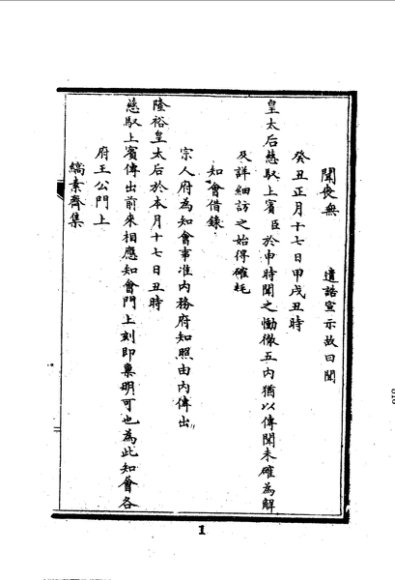 聞喪無　　遺誥宣示故曰聞
癸丑正月十七日甲戌丑時
皇太后慈馭上賓臣於申時聞之慟徹五內猶以傳聞未確為解
及詳細訪之始得確耗
知會借錄
宗人府為知會事准內務府知照由內傳出
隆裕皇太后於本月十七日丑時
慈馭上賓傳出前來相應知會門上刻即稟明可也為此知會各
府王公門上
縞素齊集
1